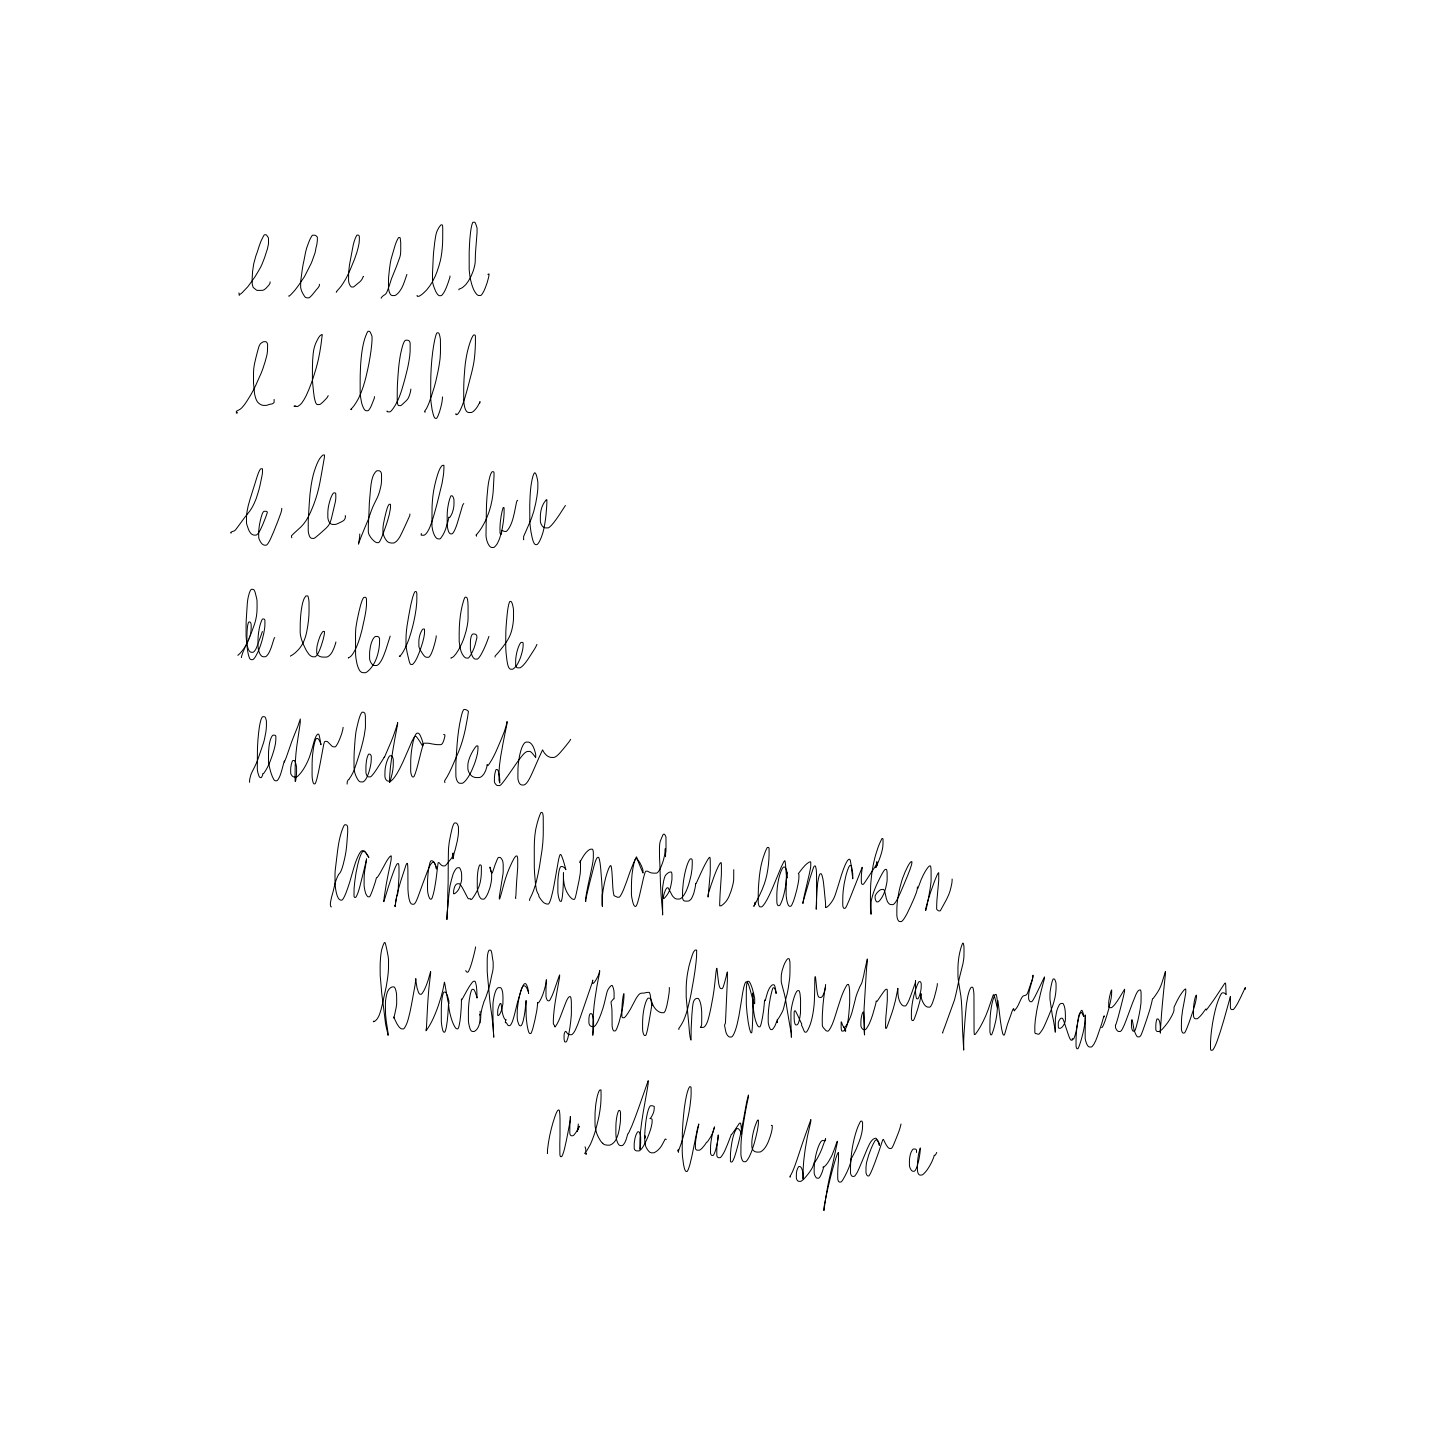 l l l l l l
l l l l l l
le le le le le le
le le le le le le
leto leto leto
lamoken lamoken lamoken
kračkarstvo krackrstva harkarstva
v lete bude teplo a